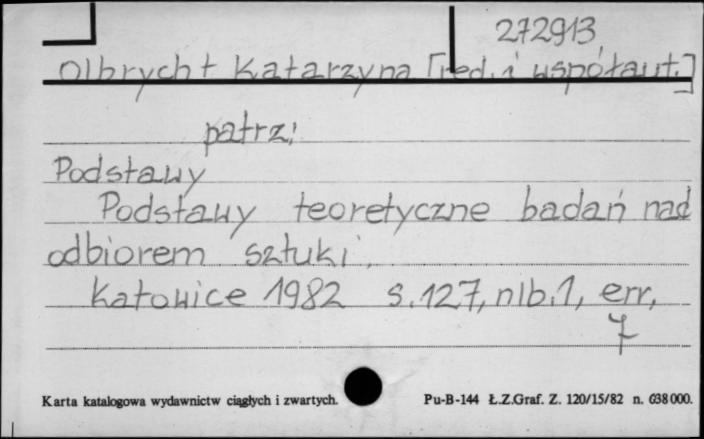 272913
Olbrycht Katarzyna [red. i współaut.]
patrz:
Podstawy
Podstawy teoretyczne badań nad
odbiorem sztuki.
Katowice 1982 s. 127, nlb. 1, err.
7
Karta katalogowa wydawnictw ciągłych i zwartych. Pu-B-144 Ł.Z.Graf. Z. 120/15/82 n. 638000.